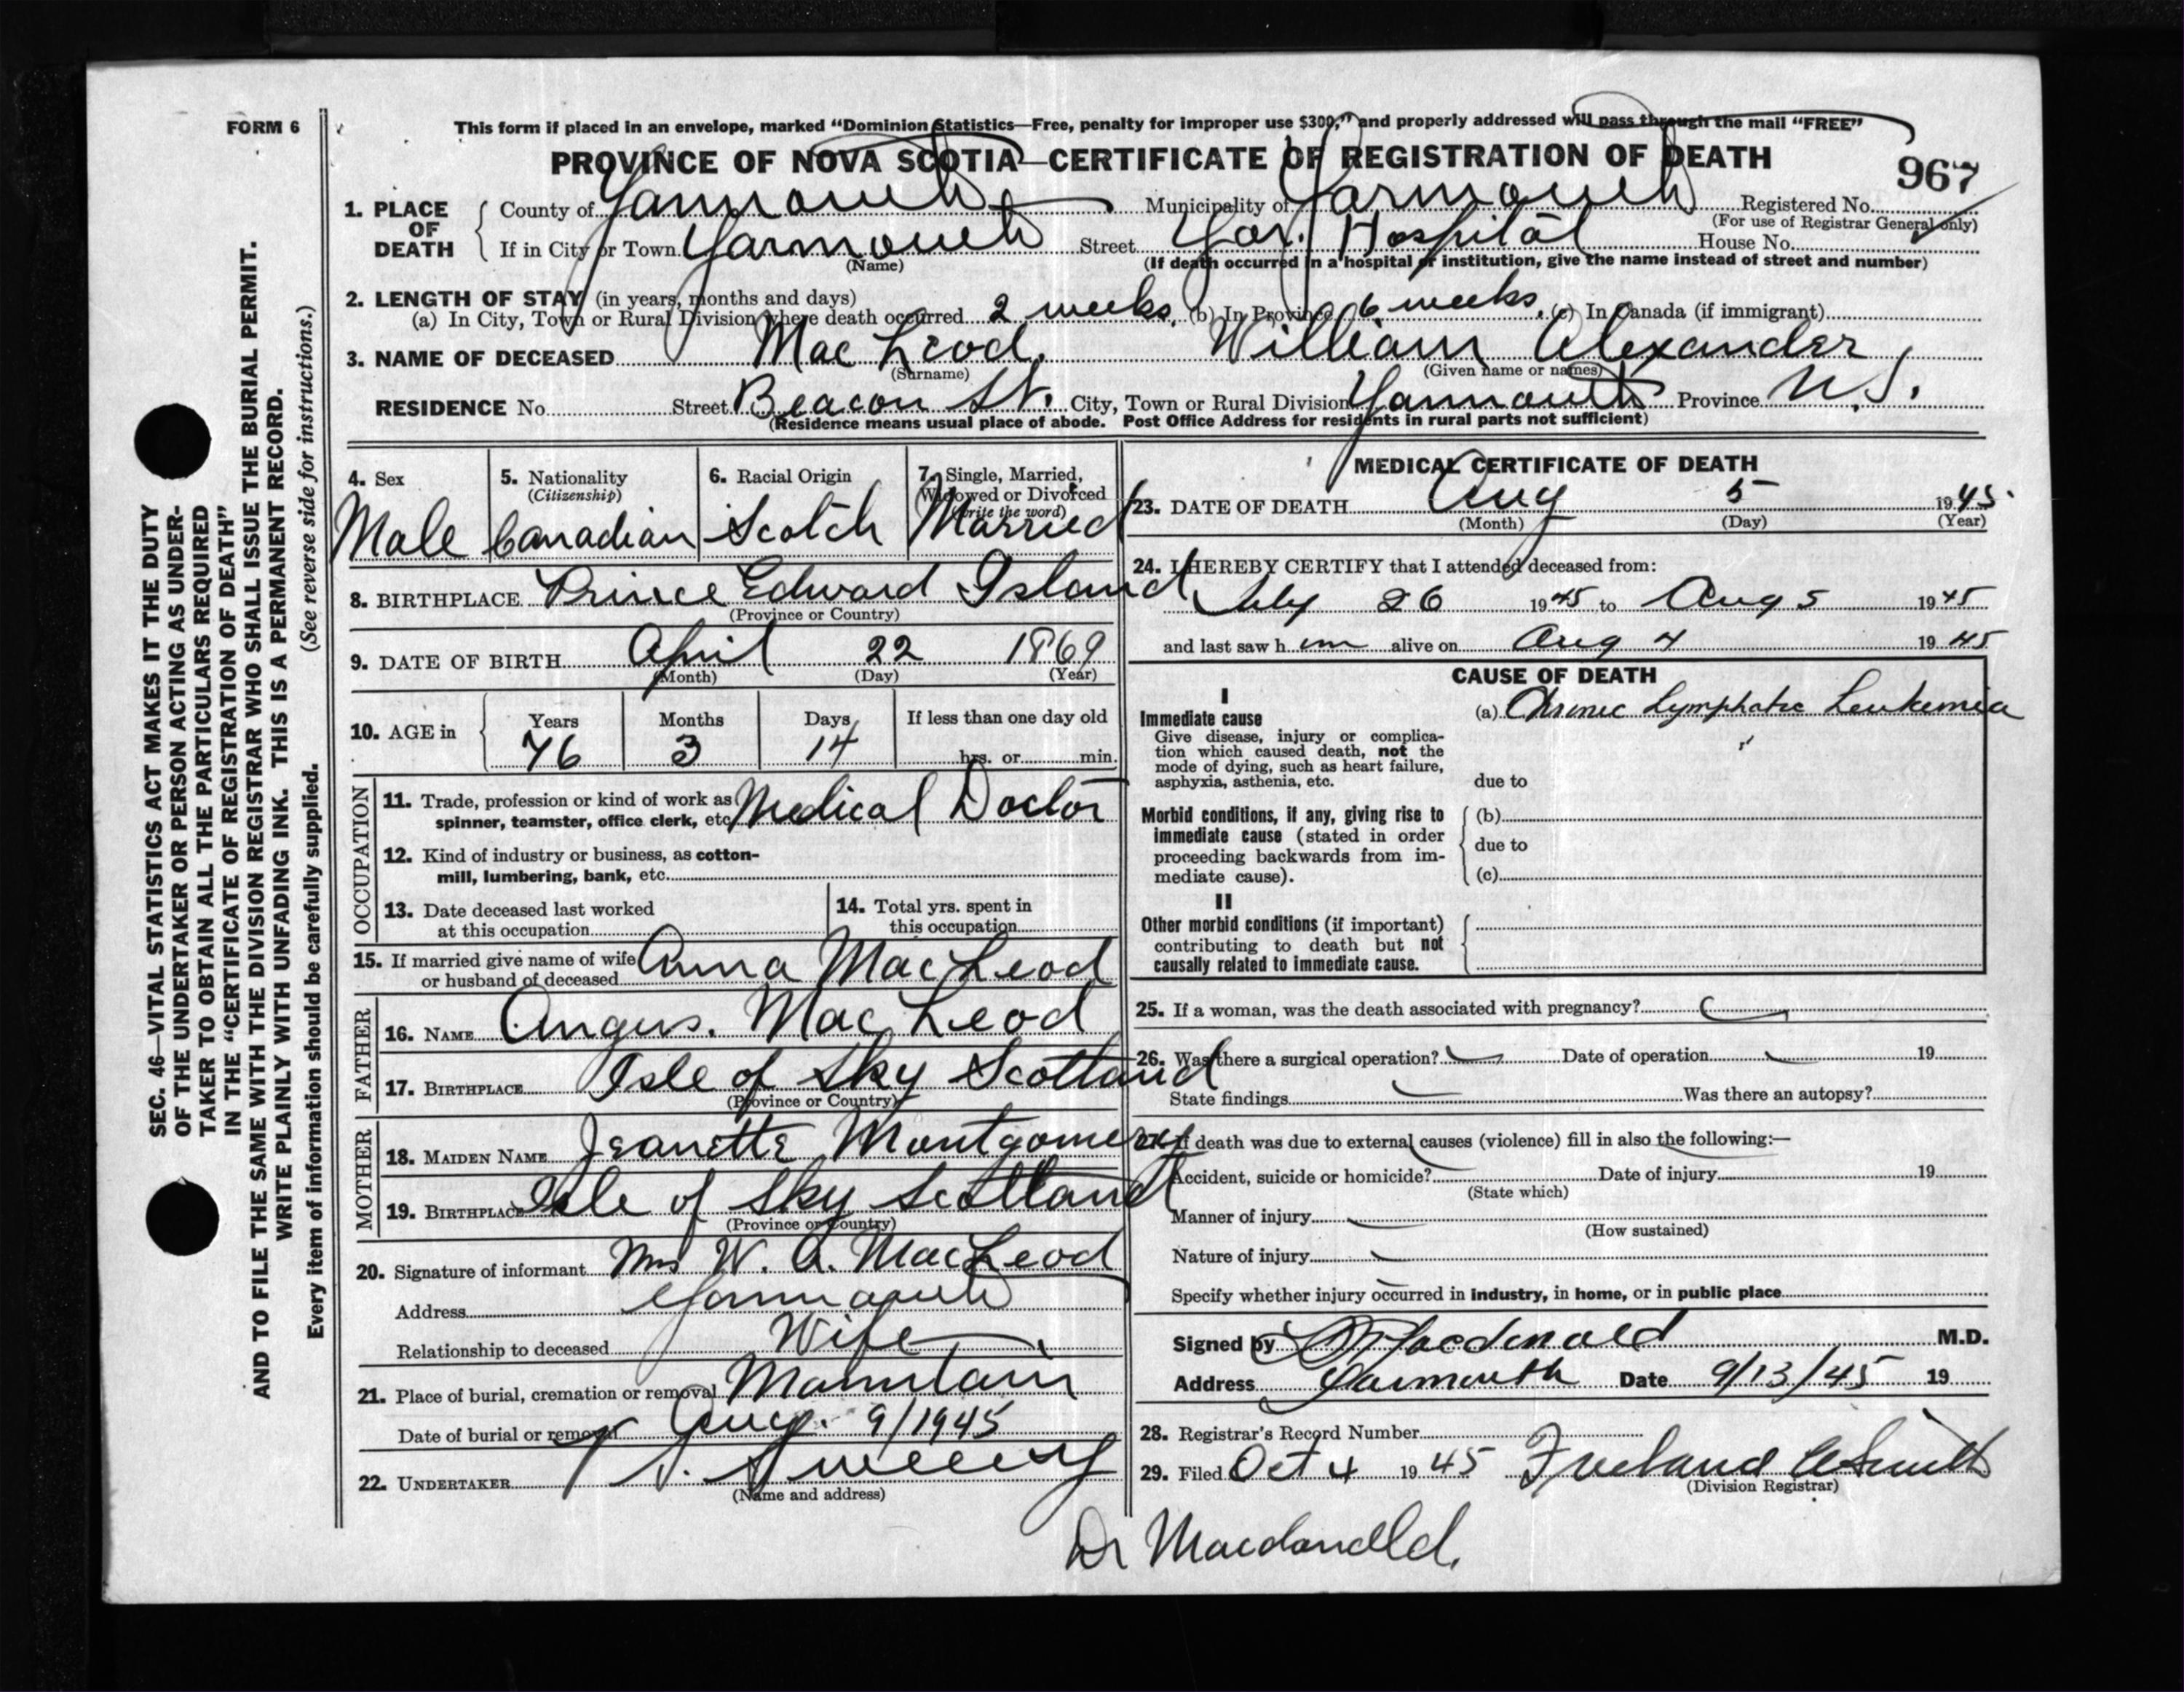 FORM 6
This form if placed in an envelope, marked “Dominion Statistics—Free, penalty for improper use $300,” and properly addressed will pass through the mail “FREE”
PROVINCE OF NOVA SCOTIA—CERTIFICATE OF REGISTRATION OF DEATH
967
1. PLACE OF DEATH County of Yarmouth Municipality of Yarmouth Registered No.
(For use of Registrar General only)
If in City or Town Yarmouth Street Yar. Hospital House No.
(Name) (If death occurred in a hospital or institution, give the name instead of street and number)
2. LENGTH OF STAY (in years, months and days)
(a) In City, Town or Rural Division where death occurred 2 weeks, (b) In Province 6 weeks, (c) In Canada (if immigrant)
3. NAME OF DECEASED MacLeod, William Alexander
(Surname) (Given name or names)
RESIDENCE No. Street Beacon St. City, Town or Rural Division Yarmouth Province N.S.
(Residence means usual place of abode. Post Office Address for residents in rural parts not sufficient)
4. Sex
Male
5. Nationality
(Citizenship)
Canadian
6. Racial Origin
Scotch
7. Single, Married,
Widowed or Divorced
(write the word)
Married
8. BIRTHPLACE Prince Edward Island
(Province or Country)
9. DATE OF BIRTH April 22 1869
(Month) (Day) (Year)
10. AGE in Years Months Days If less than one day old
76 3 14 hrs. or min.
OCCUPATION
11. Trade, profession or kind of work as
spinner, teamster, office clerk, etc. Medical Doctor
12. Kind of industry or business, as cotton-
mill, lumbering, bank, etc.
13. Date deceased last worked
at this occupation
14. Total yrs. spent in
this occupation
15. If married give name of wife
or husband of deceased Anna MacLeod
FATHER
16. NAME Angus. MacLeod
17. BIRTHPLACE Isle of Sky Scotland
(Province or Country)
MOTHER
18. MAIDEN NAME Jeanette Montgomery
19. BIRTHPLACE Isle of Sky Scotland
(Province or Country)
20. Signature of informant Mrs W. A. MacLeod
Address Yarmouth
Relationship to deceased Wife
21. Place of burial, cremation or removal Mountain
Date of burial or removal Aug. 9/1945
22. UNDERTAKER V. S. Sweeny
(Name and address)
MEDICAL CERTIFICATE OF DEATH
23. DATE OF DEATH Aug 5 1945.
(Month) (Day) (Year)
24. I HEREBY CERTIFY that I attended deceased from:
July 26 1945 to Aug 5 1945
and last saw him alive on Aug 4 1945
CAUSE OF DEATH
I
Immediate cause
Give disease, injury or complica-
tion which caused death, not the
mode of dying, such as heart failure,
asphyxia, asthenia, etc.
(a) Chronic Lymphatic Leukemia
due to
Morbid conditions, if any, giving rise to
immediate cause (stated in order
proceeding backwards from im-
mediate cause).
(b)
due to
(c)
II
Other morbid conditions (if important)
contributing to death but not
causally related to immediate cause.
25. If a woman, was the death associated with pregnancy?
26. Was there a surgical operation? Date of operation 19
State findings Was there an autopsy?
27. If death was due to external causes (violence) fill in also the following:—
Accident, suicide or homicide? Date of injury 19
(State which)
Manner of injury
(How sustained)
Nature of injury
Specify whether injury occurred in industry, in home, or in public place
Signed by Macdonald M.D.
Address Yarmouth Date 9/13/45 19
28. Registrar's Record Number
29. Filed Oct 4 1945 Freland A Smith
(Division Registrar)
Dr Macdonald.
SEC. 46—VITAL STATISTICS ACT MAKES IT THE DUTY
OF THE UNDERTAKER OR PERSON ACTING AS UNDER-
TAKER TO OBTAIN ALL THE PARTICULARS REQUIRED
IN THE “CERTIFICATE OF REGISTRATION OF DEATH”
AND TO FILE THE SAME WITH THE DIVISION REGISTRAR WHO SHALL ISSUE THE BURIAL PERMIT.
WRITE PLAINLY WITH UNFADING INK. THIS IS A PERMANENT RECORD.
Every item of information should be carefully supplied. (See reverse side for instructions.)